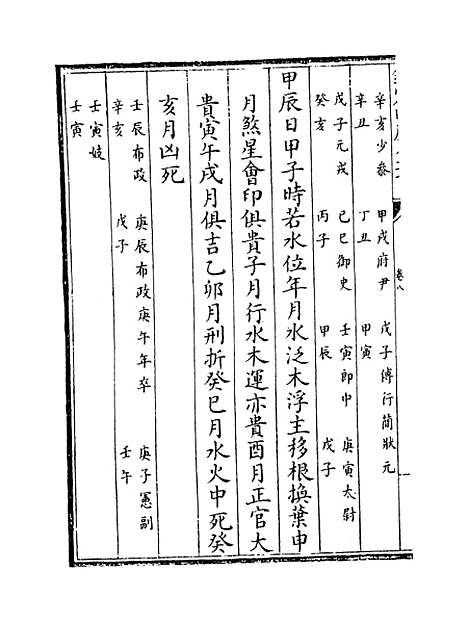 卷八
辛亥少參　甲戌府尹　戊子傅行簡狀元
辛丑　丁丑　甲寅
戊子元戎　己巳御史　壬寅郎中　庚寅太尉
癸亥　丙子　甲辰　戊子
甲辰日甲子時若水位年月水泛木浮主移根換葉申
月煞星會印俱貴子月行水木運亦貴酉月正官大
貴寅午戌月俱吉乙卯月刑折癸巳月水火中死癸
亥月凶死
壬辰布政　庚辰布政庚午年卒　庚子憲副
辛亥　戊子　壬午
壬寅妓
壬寅